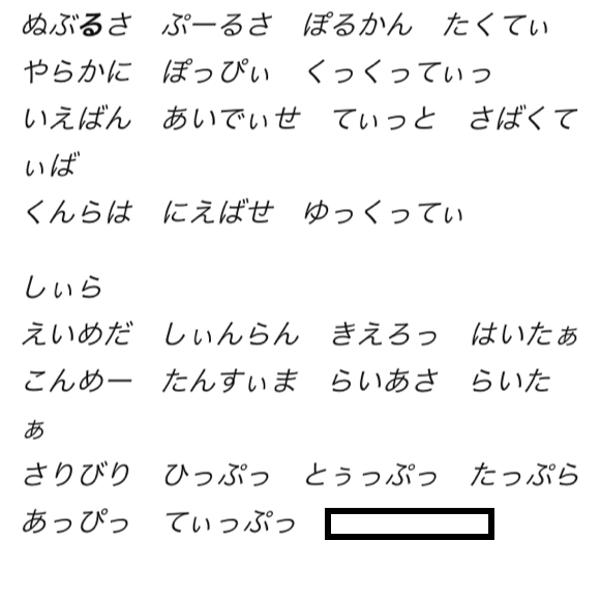 ぬぶるさ　ぷーるさ　ぽるかん　たくてぃ
やらかに　ぽっぴぃ　くっくってぃっ
いえばん　あいでぃせ　てぃっと　さばくて
ぃば
くんらは　にえばせ　ゆっくってぃ
しぃら
えいめだ　しぃんらん　きえろっ　はいたぁ
こんめー　たんすぃま　らいあさ　らいた
ぁ
さりびり　ひっぷっ　とぅっぷっ　たっぷら
あっぴっ　てぃっぷっ